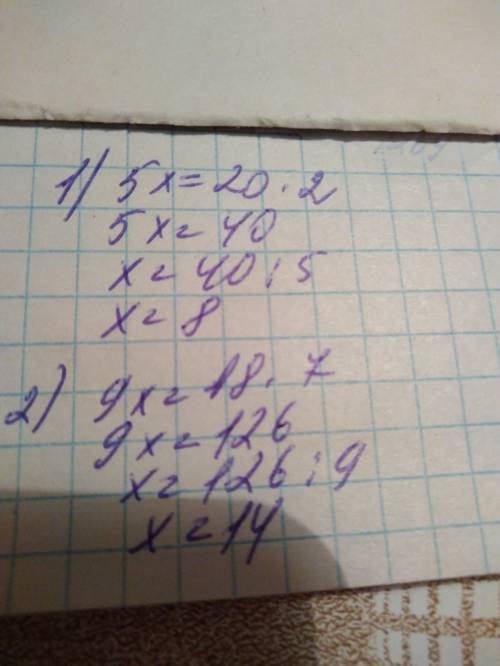 1) 5x = 20 · 2
5x = 40
x = 40 : 5
x = 8
2) 9x = 18 · 7
9x = 126
x = 126 : 9
x = 14